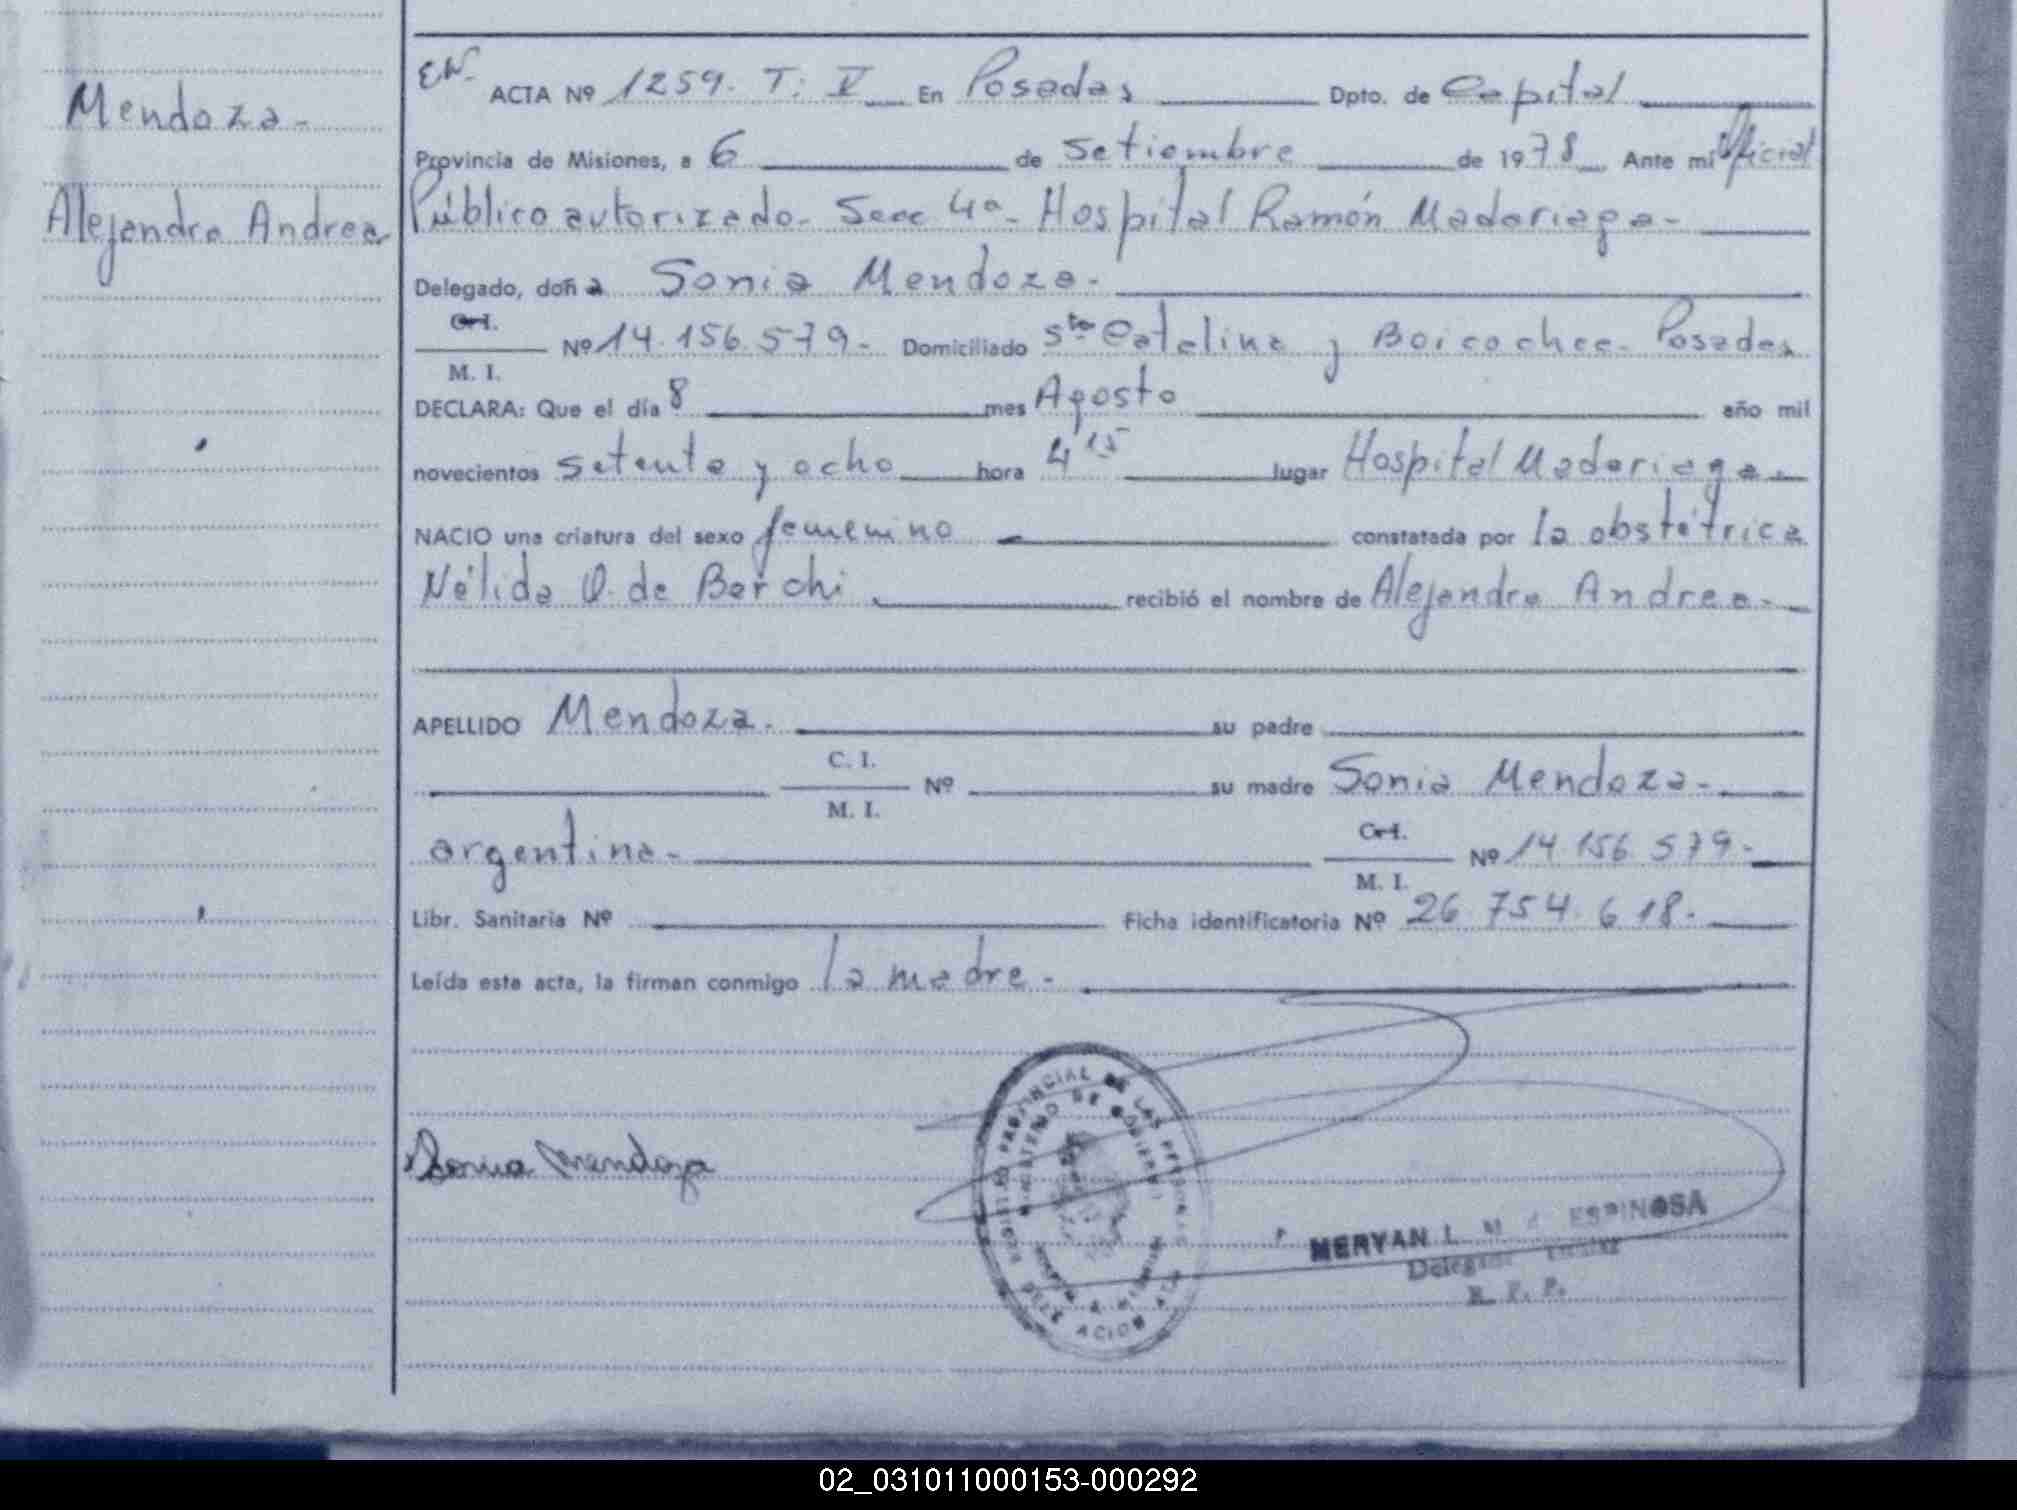 EW.
ACTA Nº 1259. T: V En Posadas Dpto. de Capital
Mendoza-
Provincia de Misiones, a 6 de Setiembre de 1978 Ante mi Oficial
Alejandra Andrea
Público autorizado- Secc 4ª- Hospital Ramón Madariaga-
Delegado, doña Sonia Mendoza-
C. I.
Nº 14.156.579- Domiciliado Sta Catalina y Boicochee- Posadas
M. I.
DECLARA: Que el día 8 mes Agosto año mil
novecientos setenta y ocho hora 4 15 lugar Hospital Madariaga-
NACIO una criatura del sexo femenino constatada por la obstétrica
Nélida O. de Barchi recibió el nombre de Alejandra Andrea-
APELLIDO Mendoza- su padre
C. I.
Nº su madre Sonia Mendoza-
M. I.
argentina-
C. I.
Nº 14 156 579-
M. I.
Libr. Sanitaria Nº Ficha identificatoria Nº 26.754.618-
Leída esta acta, la firman conmigo la madre-
Sonia Mendoza
REGISTRO PROVINCIAL DE LAS PERSONAS
MINISTERIO DE GOBIERNO
DELEGACION
MERYAN L. M ESPINOSA
R. P. P.
02_031011000153-000292